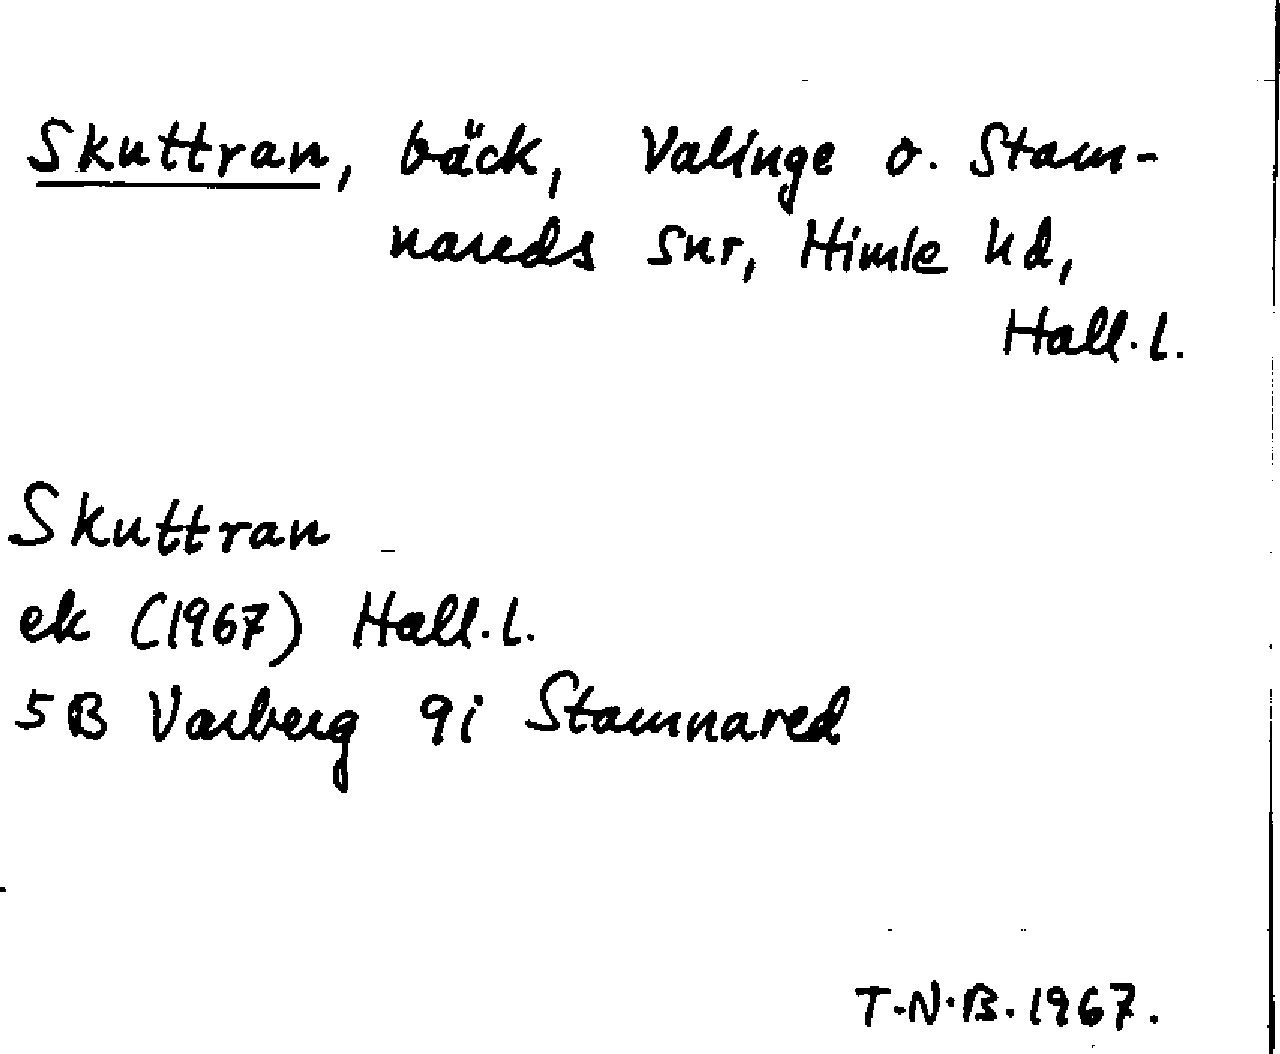 Skuttran, bäck, Valinge o. Stam-
nareds snr, Himle hd,
Hall. l.
Skuttran
ek (1967) Hall. l.
5B Varberg 9i Stamnared
T.N.B. 1967.